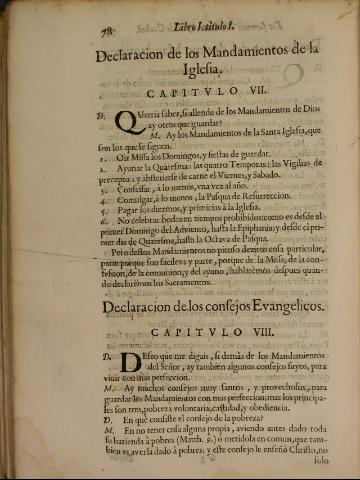 78 Libro I. titulo I.
Declaracion de los Mandamientos de la
Iglesia.
CAPITVLO VII.
D. QUerria saber, si allende de los Mandamientos de Dios
ay otros que guardar?
M. Ay los Mandamientos de la Santa Iglesia, que
son los que se siguen.
1. Oir Missa los Domingos, y fiestas de guardar.
2. Ayunar la Quaresma: las quatro Temporas: las Vigilias de
precepto: y abstenerse de carne el Viernes, y Sabado.
3. Confessar, à lo menos, vna vez al año.
4. Comulgar, à lo menos, la Pasqua de Resurreccion.
5. Pagar los diezmos, y primicias à la Iglesia.
6. No celebrar bodas en tiempos prohibidos: como es desde el
primer Domingo del Adviento, hasta la Epiphania: y desde el pri-
mer dia de Quaresma, hasta la Octava de Pasqua.
Pero destos Mandamientos no pienso dezir os cosa particular,
parte porque son faciles: y parte, porque de la Missa, de la con-
fession, de la comunion, y del ayuno, hablarèmos despues quan-
do declarèmos los Sacramentos.
Declaracion de los consejos Evangelicos.
CAPITVLO VIII.
D. DEseo que me digais, si demàs de los Mandamientos
del Señor, ay tambien algunos consejos suyos, para
vivir con mas perfeccion.
M. Ay muchos consejos muy santos, y provechosos, para
guardar los Mandamientos con mas perfeccion; mas los principa-
les son tres, pobreza voluntaria, castidad, y obediencia.
D. En què consiste el consejo de la pobreza?
M. En no tener cosa alguna propia, aviendo antes dado toda
su hazienda à pobres (Matth. 9.) ò metidola en comun, que tam-
bien es averla dado à pobres: y este consejo le enseñò Christo, no
solo